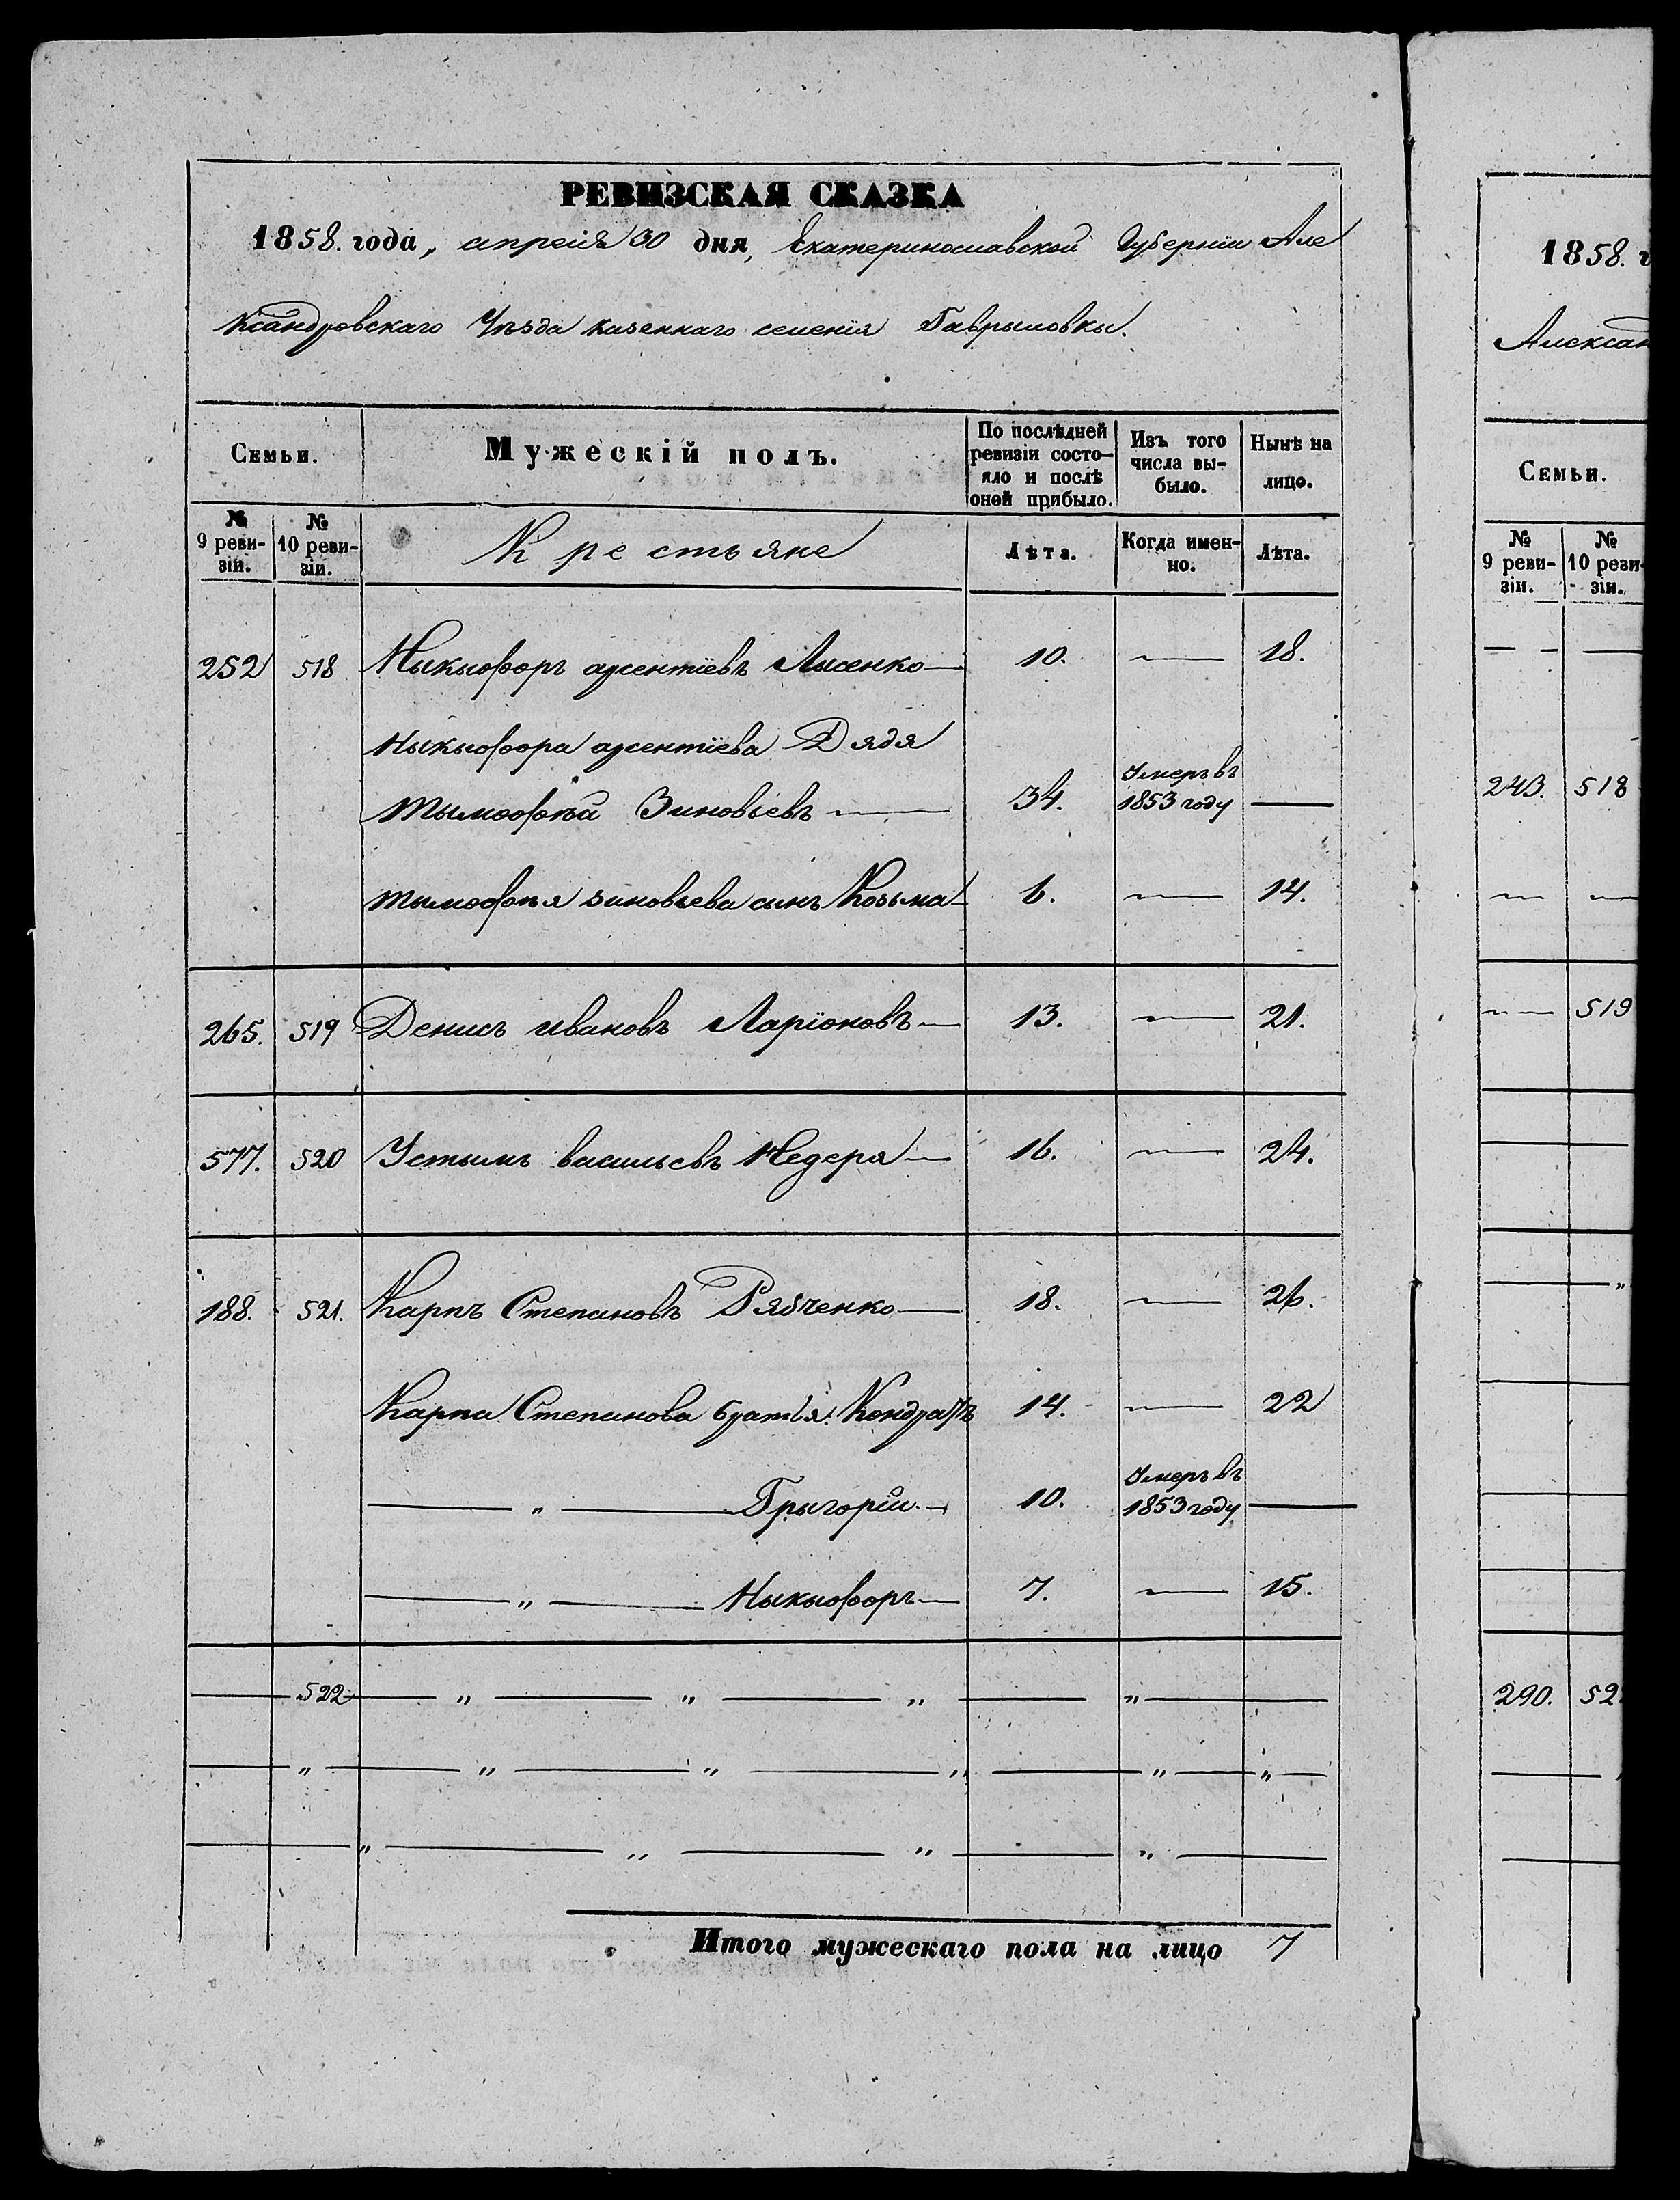 РЕВИЗСКАЯ СКАЗКА
1858. года, апреля 30 дня, Екатеринославской Губерніи Але
ксандровскаго Уѣзда казеннаго селенія Гаврыловкы.
Семьи.
Мужескій полъ.
По послѣдней ревизіи состо-
яло и послѣ оной прибыло.
Изъ того числа вы-
было.
Нынѣ на лицо.
№ 9 реви-
зіи.
№ 10 реви-
зіи.
Крестьяне
Лѣта.
Когда имен-
но.
Лѣта.
252 518 Ныкыфоръ арсентіевъ Лисенко — 10. — 18.
Ныкыфора арсентіева Дядя
Тымофѣй Зиновьевъ — 34. Умеръ въ 1853 году —
Тымофѣя зиновьева сынъ Козьма — 6. — 14.
265. 519 Денисъ ивановъ Ларіоновъ — 13. — 21.
577. 520 Устымъ васильевъ — 16. — 24.
188. 521. Карпъ Степановъ Рябченко — 18. — 26.
Карпа Степанова братья: Кондратъ 14. — 22
— " — Грыгорій. — 10. Умеръ въ 1853 году —
— " — Ныкыфоръ — 7. — 15.
— 522 — " — " — " — " —
— " — " — " — " — " — " —
— " — " — " — " —
Итого мужескаго пола на лицо 7
1858. г
Александ
Семьи.
№ 9 реви-
зіи.
№ 10 реви-
зіи.
— —
243. 518
— —
— 519
—
— "
290. 52